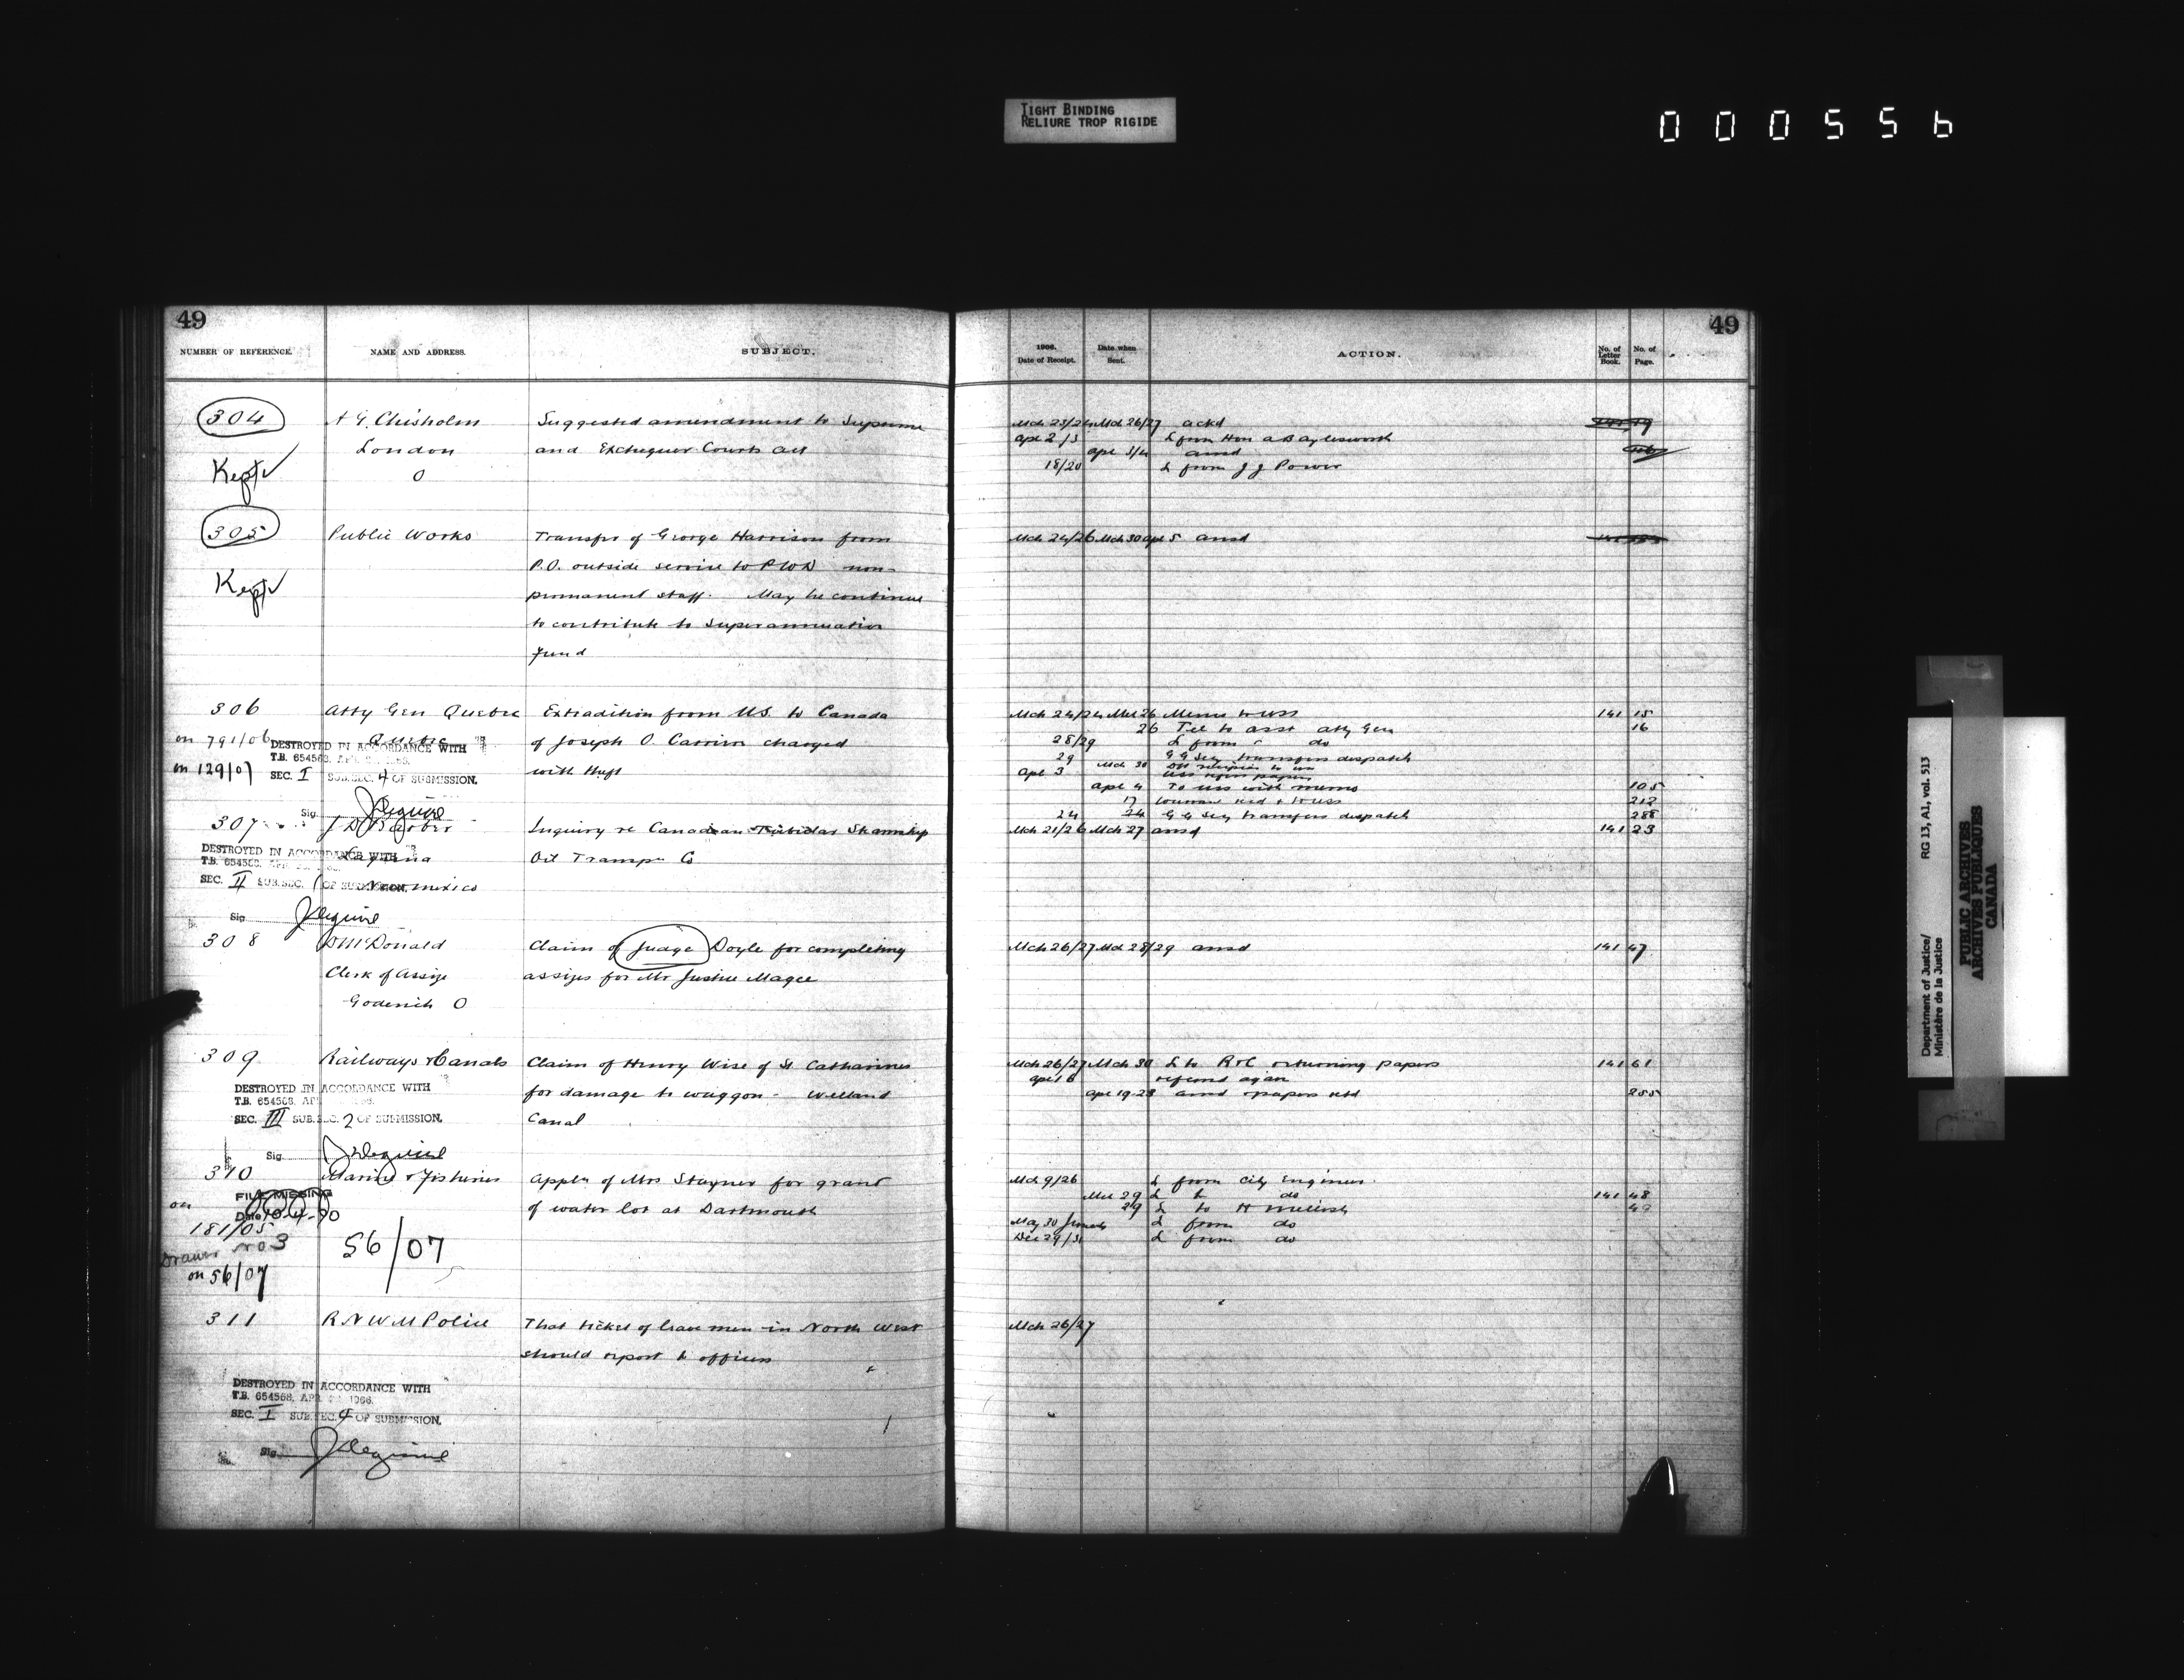 TIGHT BINDING
RELIURE TROP RIGIDE
000556
49
NUMBER OF REFERENCE.
NAME AND ADDRESS.
SUBJECT.
304
A G. Chisholm
Suggested amendment to Supreme
London
and Exchequer Courts Act
Kept
O
305
Public Works
Transfer of George Harrison from
P.O. outside service to PWD non-
Kept
permanent staff. May he continue
to contribute to Superannuation
Fund
306
Atty Gen Quebec
Extradition from U.S. to Canada
on 791/06
Quebec
of Joseph O. charged
DESTROYED IN ACCORDANCE WITH
T.B. 654568,
on 129/07
with theft
SEC. I SUB.SEC. 4 OF SUBMISSION.
Sig.
307
J D Barber
Inquiry re Canadian Steamship
DESTROYED IN ACCORDANCE WITH
T.B. 654568,
Oil Co
SEC. II SUB.SEC. 1 OF SUBMISSION.
New Mexico
Sig
308
McDonald
Claim of Judge Doyle for completing
Clerk of Assize
assizes for Mr Justice Magee
Goderich O
309
Railways & Canals
Claim of Henry Wise of St Catharines
DESTROYED IN ACCORDANCE WITH
T.B. 654568,
for damage to waggon - Welland
SEC. III SUB.SEC. 2 OF SUBMISSION.
Canal
Sig.
310
Marine & Fisheries
Appln of Mrs Stayner for grant
FILE MISSING
on
of water lot at Dartmouth
Date
181/05
Drawer No 3
56/07
on 56/07
311
R N W M Police
That ticket of leave men in North West
should report to officers
DESTROYED IN ACCORDANCE WITH
T.B. 654568, APR 1966.
SEC. I SUB.SEC. 4 OF SUBMISSION.
Sig.
49
1906.
Date of Receipt.
Date when
Sent.
ACTION.
No. of
Letter
Book.
No. of
Page.
Mch 23/24 Mch 26/27 ackd
Apl 2/3 L from Hon A B Aylesworth
Apl 3/4 ansd
18/20 L from J J Power
Mch 24/26 Mch 30 Apl 5 ansd
Mch 24/24 Mch 26 Memo to USS 141 15
26 Tel to asst Atty Gen 16
28/29 L from do
29 G G Sey transfers dispatch
Mch 30
Apl 3 USS papers
Apl 4 To USS with memo 105
17 212
24 24 G G Sey transfers dispatch 288
Mch 21/26 Mch 27 ansd 141 23
Mch 26/27 Mch 28/29 ansd 141 47
Mch 26/27 Mch 30 L to R&C returning papers 141 61
Apl 18 referred again
Apl 19-23 ansd papers retd 255
Mch 9/26 L from City Engineer
Mch 29 L to do 141 48
29 L to H Mellish 49
May 30 L from do
Dec 29/31 L from do
Mch 26/27
Department of Justice/
Ministère de la Justice
RG 13, A1, vol. 513
PUBLIC ARCHIVES
ARCHIVES PUBLIQUES
CANADA